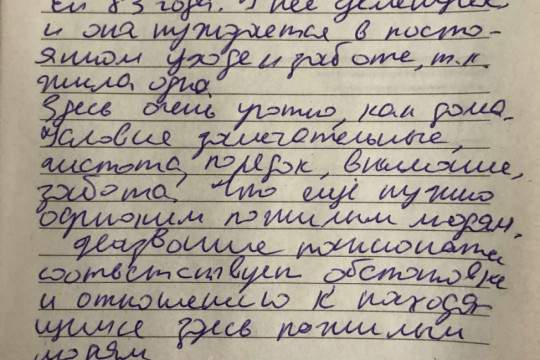 ей 83 года. У неё деменция
и она нуждается в посто-
янном уходе и заботе, т.к.
жила одна.
Здесь очень уютно, как дома.
Условие замечательные,
чистота, порядок, внимание,
забота. Что ещё нужно
одиноким пожилым людям.
название пансионата
соответствует обстановке
и отношению к находя-
щимся здесь пожилым
людям